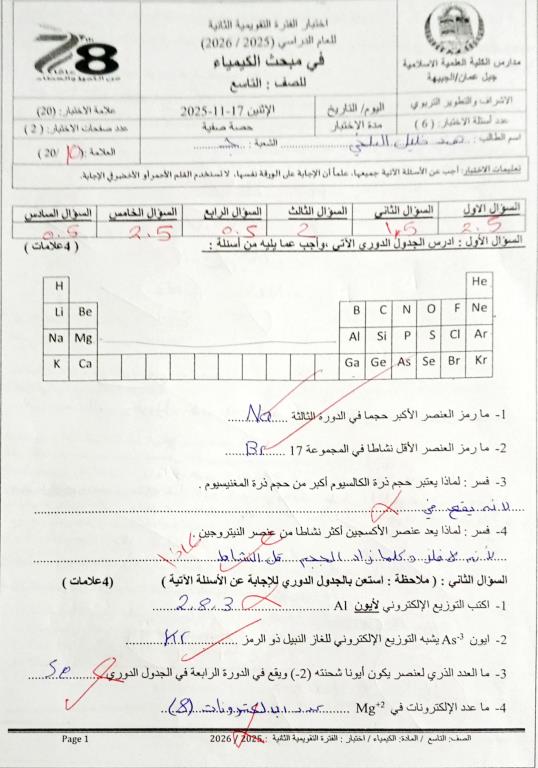 اختبار الفترة التقويمية الثانية
للعام الدراسي (2025 / 2026)
في مبحث الكيمياء
للصف : التاسع
مدارس الكلية العلمية الاسلامية
جبل عمان/الجبيهة
78
الاشراف والتطوير التربوي
اليوم/ التاريخ
الإثنين 17-11-2025
علامة الاختبار: (20)
عدد أسئلة الاختبار: ( 6 )
مدة الاختبار
حصة صفية
عدد صفحات الاختبار: ( 2 )
اسم الطالب : خليل الشعبة : ج
العلامة: (10 /20)
تعليمات الاختبار: أجب عن الأسئلة الآتية جميعها، علماً أن الإجابة على الورقة نفسها، لا تستخدم القلم الأحمر أو الأخضر في الإجابة.
السؤال الاول السؤال الثاني السؤال الثالث السؤال الرابع السؤال الخامس السؤال السادس
2.5 1.5 2 0.5 2.5 0.5
السؤال الأول : ادرس الجدول الدوري الآتي ،وأجب عما يليه من أسئلة : ( 4علامات )
H He
Li Be B C N O F Ne
Na Mg Al Si P S Cl Ar
K Ca Ga Ge As Se Br Kr
1- ما رمز العنصر الأكبر حجما في الدورة الثالثة Na
2- ما رمز العنصر الأقل نشاطا في المجموعة 17 Br
3- فسر : لماذا يعتبر حجم ذرة الكالسيوم أكبر من حجم ذرة المغنيسيوم .
لأنه يقع في
4- فسر : لماذا يعد عنصر الأكسجين أكثر نشاطا من عنصر النيتروجين.
لأنه لا فلز وكلما زاد الحجم قل النشاط
لماذا
السؤال الثاني : ( ملاحظة : استعن بالجدول الدوري للإجابة عن الأسئلة الآتية ) (4علامات )
1- اكتب التوزيع الإلكتروني لأيون Al 2.8.3
2- ايون As-3 يشبه التوزيع الإلكتروني للغاز النبيل ذو الرمز Kr
3- ما العدد الذري لعنصر يكون أيونا شحنته (2-) ويقع في الدورة الرابعة في الجدول الدوري Se
4- ما عدد الإلكترونات في Mg+2 عدد الإلكترونات (8)
الصف: التاسع / المادة: الكيمياء / اختبار : الفترة التقويمية الثانية : 2025 / 2026
Page 1